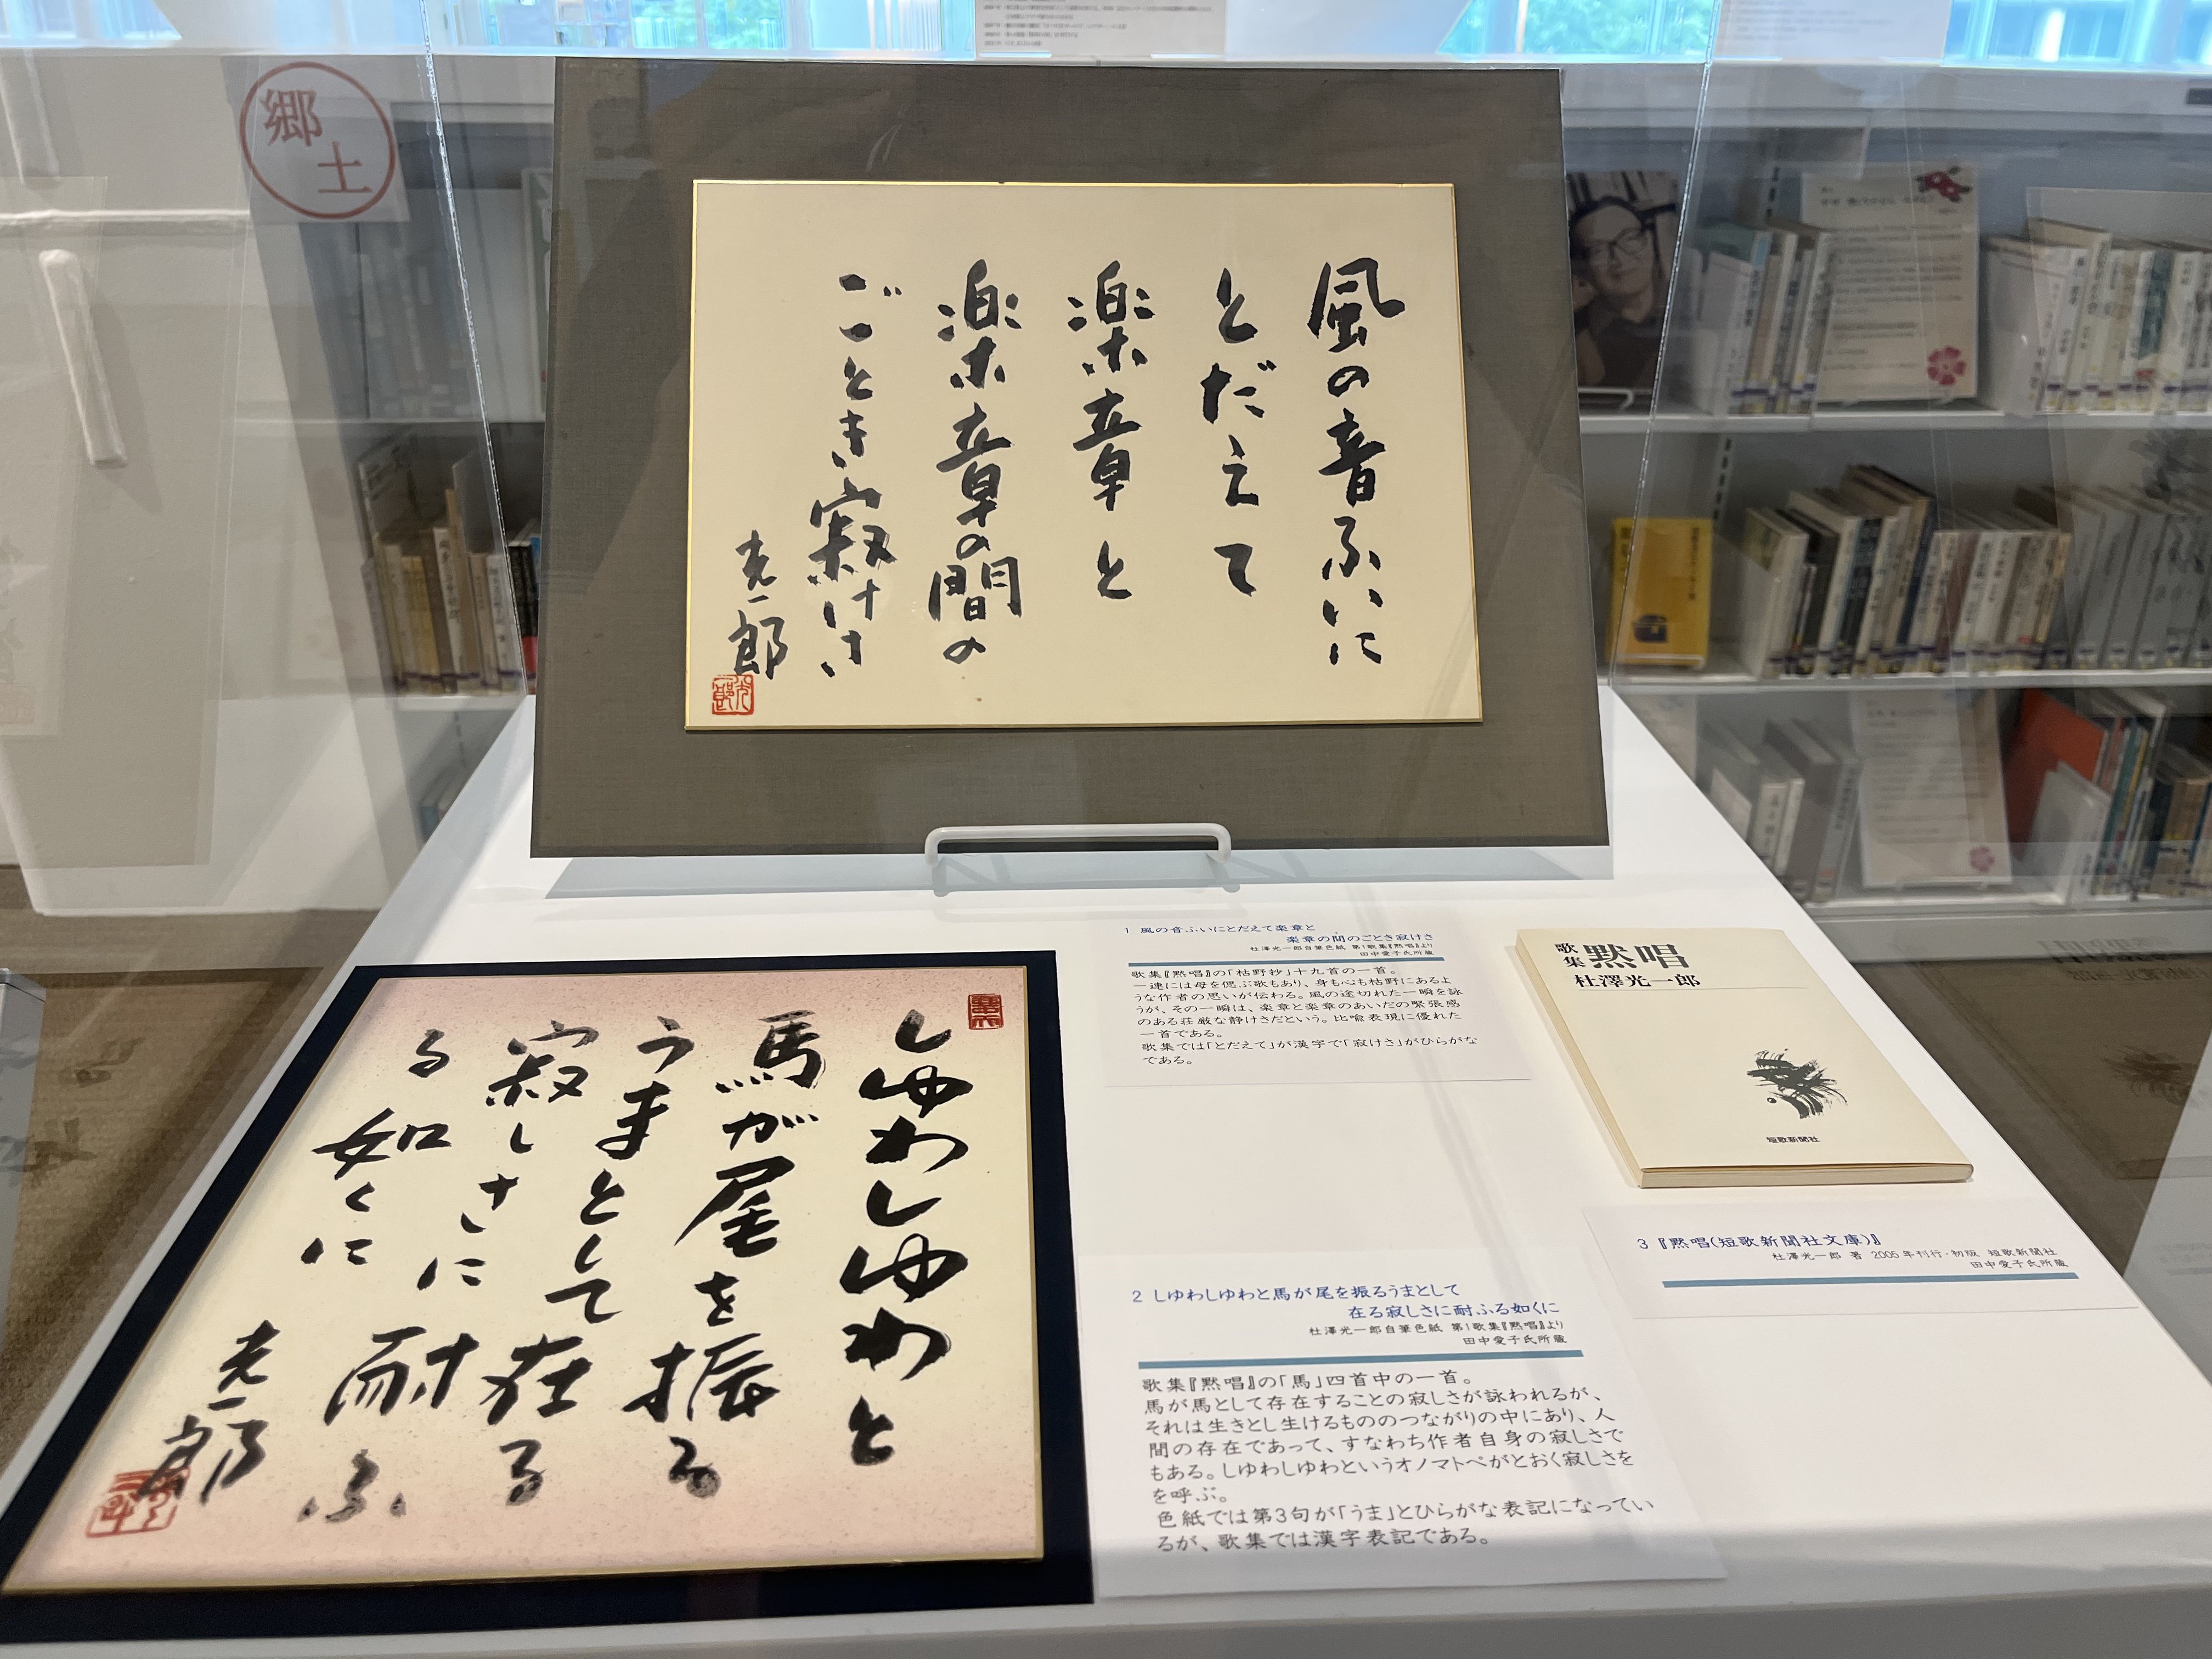 郷
土
風の音ふいに
とだえて
楽章と
楽章の間の
ごとき寂けさ
光一郎
しゆわしゆわと
馬が尾を振る
うまとして在る
寂しさに耐ふ
る如くに
光一郎
1 風の音ふいにとだえて楽章と
楽章の間のごとき寂けさ
杜澤光一郎自筆色紙 第1歌集『黙唱』より
田中愛子氏所蔵
歌集『黙唱』の「枯野抄」十九首の一首。
一連には母を偲ぶ歌もあり、身も心も枯野にあるよ
うな作者の思いが伝わる。風の途切れた一瞬を詠
うが、その一瞬は、楽章と楽章のあいだの緊張感
のある荘厳な静けさだという。比喩表現に優れた
一首である。
歌集では「とだえて」が漢字で「寂けさ」がひらがな
である。
2 しゆわしゆわと馬が尾を振るうまとして
在る寂しさに耐ふる如くに
杜澤光一郎自筆色紙 第1歌集『黙唱』より
田中愛子氏所蔵
歌集『黙唱』の「馬」四首中の一首。
馬が馬として存在することの寂しさが詠われるが、
それは生きとし生けるもののつながりの中にあり、人
間の存在であって、すなわち作者自身の寂しさで
もある。しゆわしゆわというオノマトペがとおく寂しさを
を呼ぶ。
色紙では第3句が「うま」とひらがな表記になってい
るが、歌集では漢字表記である。
歌集 黙唱
杜澤光一郎
短歌新聞社
3 『黙唱(短歌新聞社文庫)』
杜澤光一郎 著 2005年刊行・初版 短歌新聞社
田中愛子氏所蔵